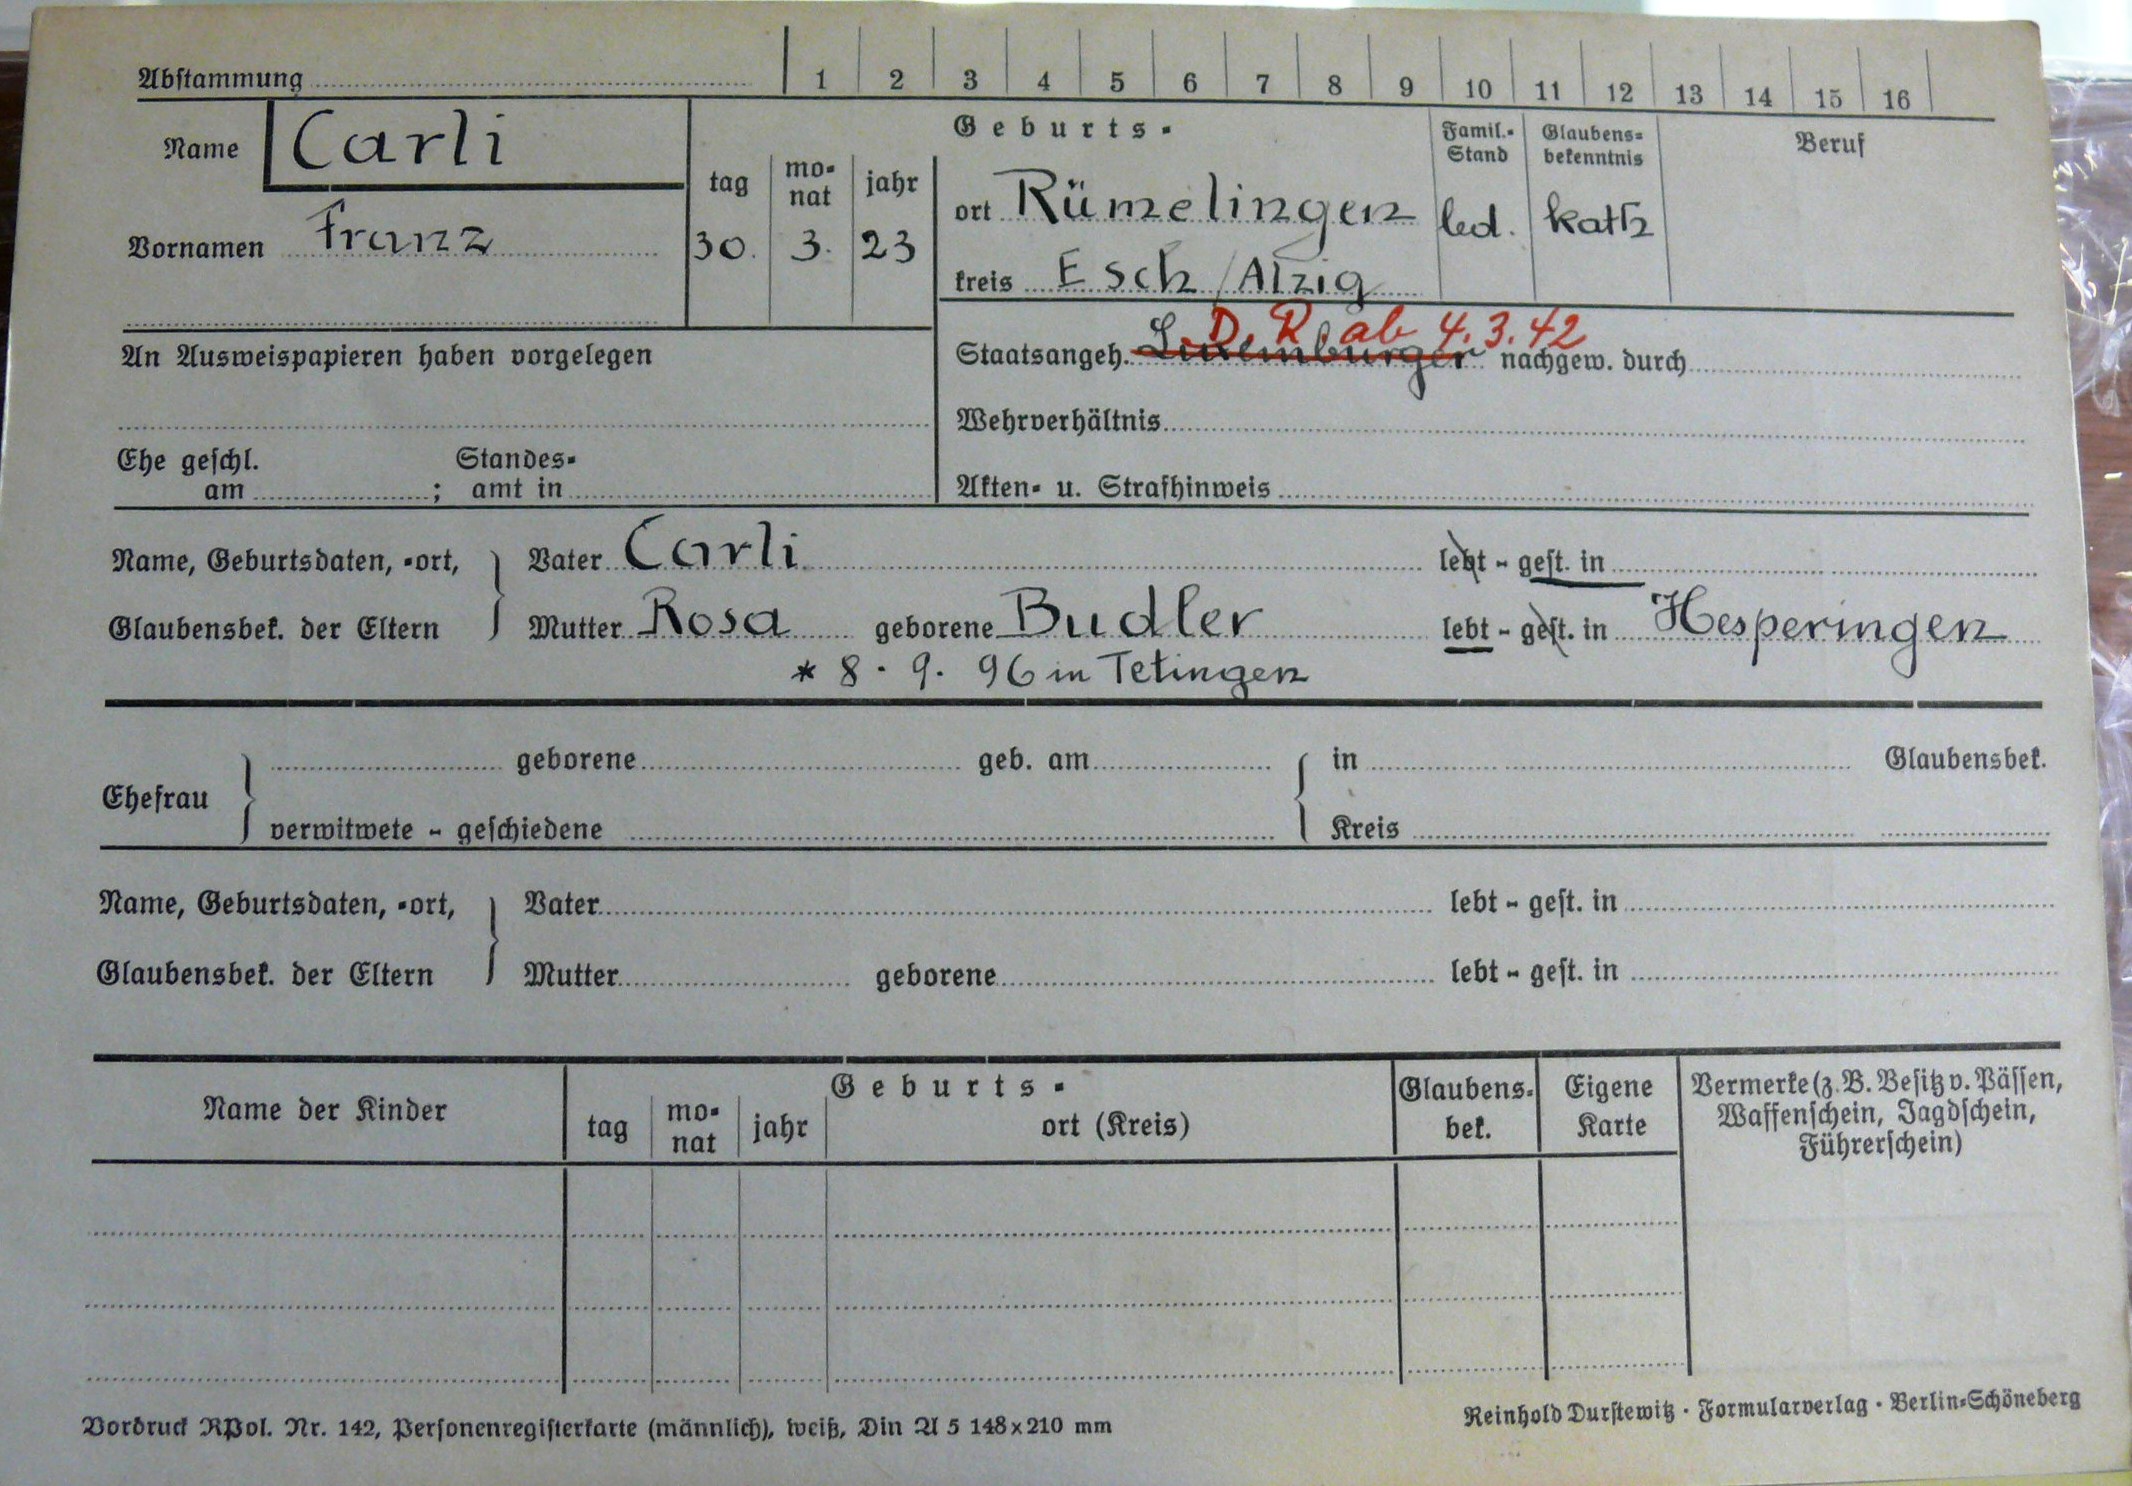 Abstammung 1 2 3 4 5 6 7 8 9 10 11 12 13 14 15 16
Name Carli
Vornamen Franz
Geburts-
tag monat jahr
30. 3. 23
ort Rümelingen
kreis Esch / Alzig
Famil.-Stand
led.
Glaubens-bekenntnis
kath
Beruf
An Ausweispapieren haben vorgelegen
D. R. ab 4.3.42
Staatsangeh. Luxemburger nachgew. durch
Wehrverhältnis
Ehe geschl. am ; Standes-amt in
Akten- u. Strafhinweis
Name, Geburtsdaten, -ort,
Glaubensbek. der Eltern
Vater Carli lebt - gest. in
Mutter Rosa geborene Budler lebt - gest. in Hesperingen
* 8. 9. 96 in Tetingen
Ehefrau
geborene geb. am in Glaubensbek.
verwitwete - geschiedene Kreis
Name, Geburtsdaten, -ort,
Glaubensbek. der Eltern
Vater lebt - gest. in
Mutter geborene lebt - gest. in
Name der Kinder
Geburts-
tag monat jahr ort (Kreis)
Glaubens-bek.
Eigene Karte
Vermerke (z. B. Besitz v. Pässen,
Waffenschein, Jagdschein,
Führerschein)
Vordruck RPol. Nr. 142, Personenregisterkarte (männlich), weiß, Din A 5 148x210 mm
Reinhold Durstewitz · Formularverlag · Berlin-Schöneberg